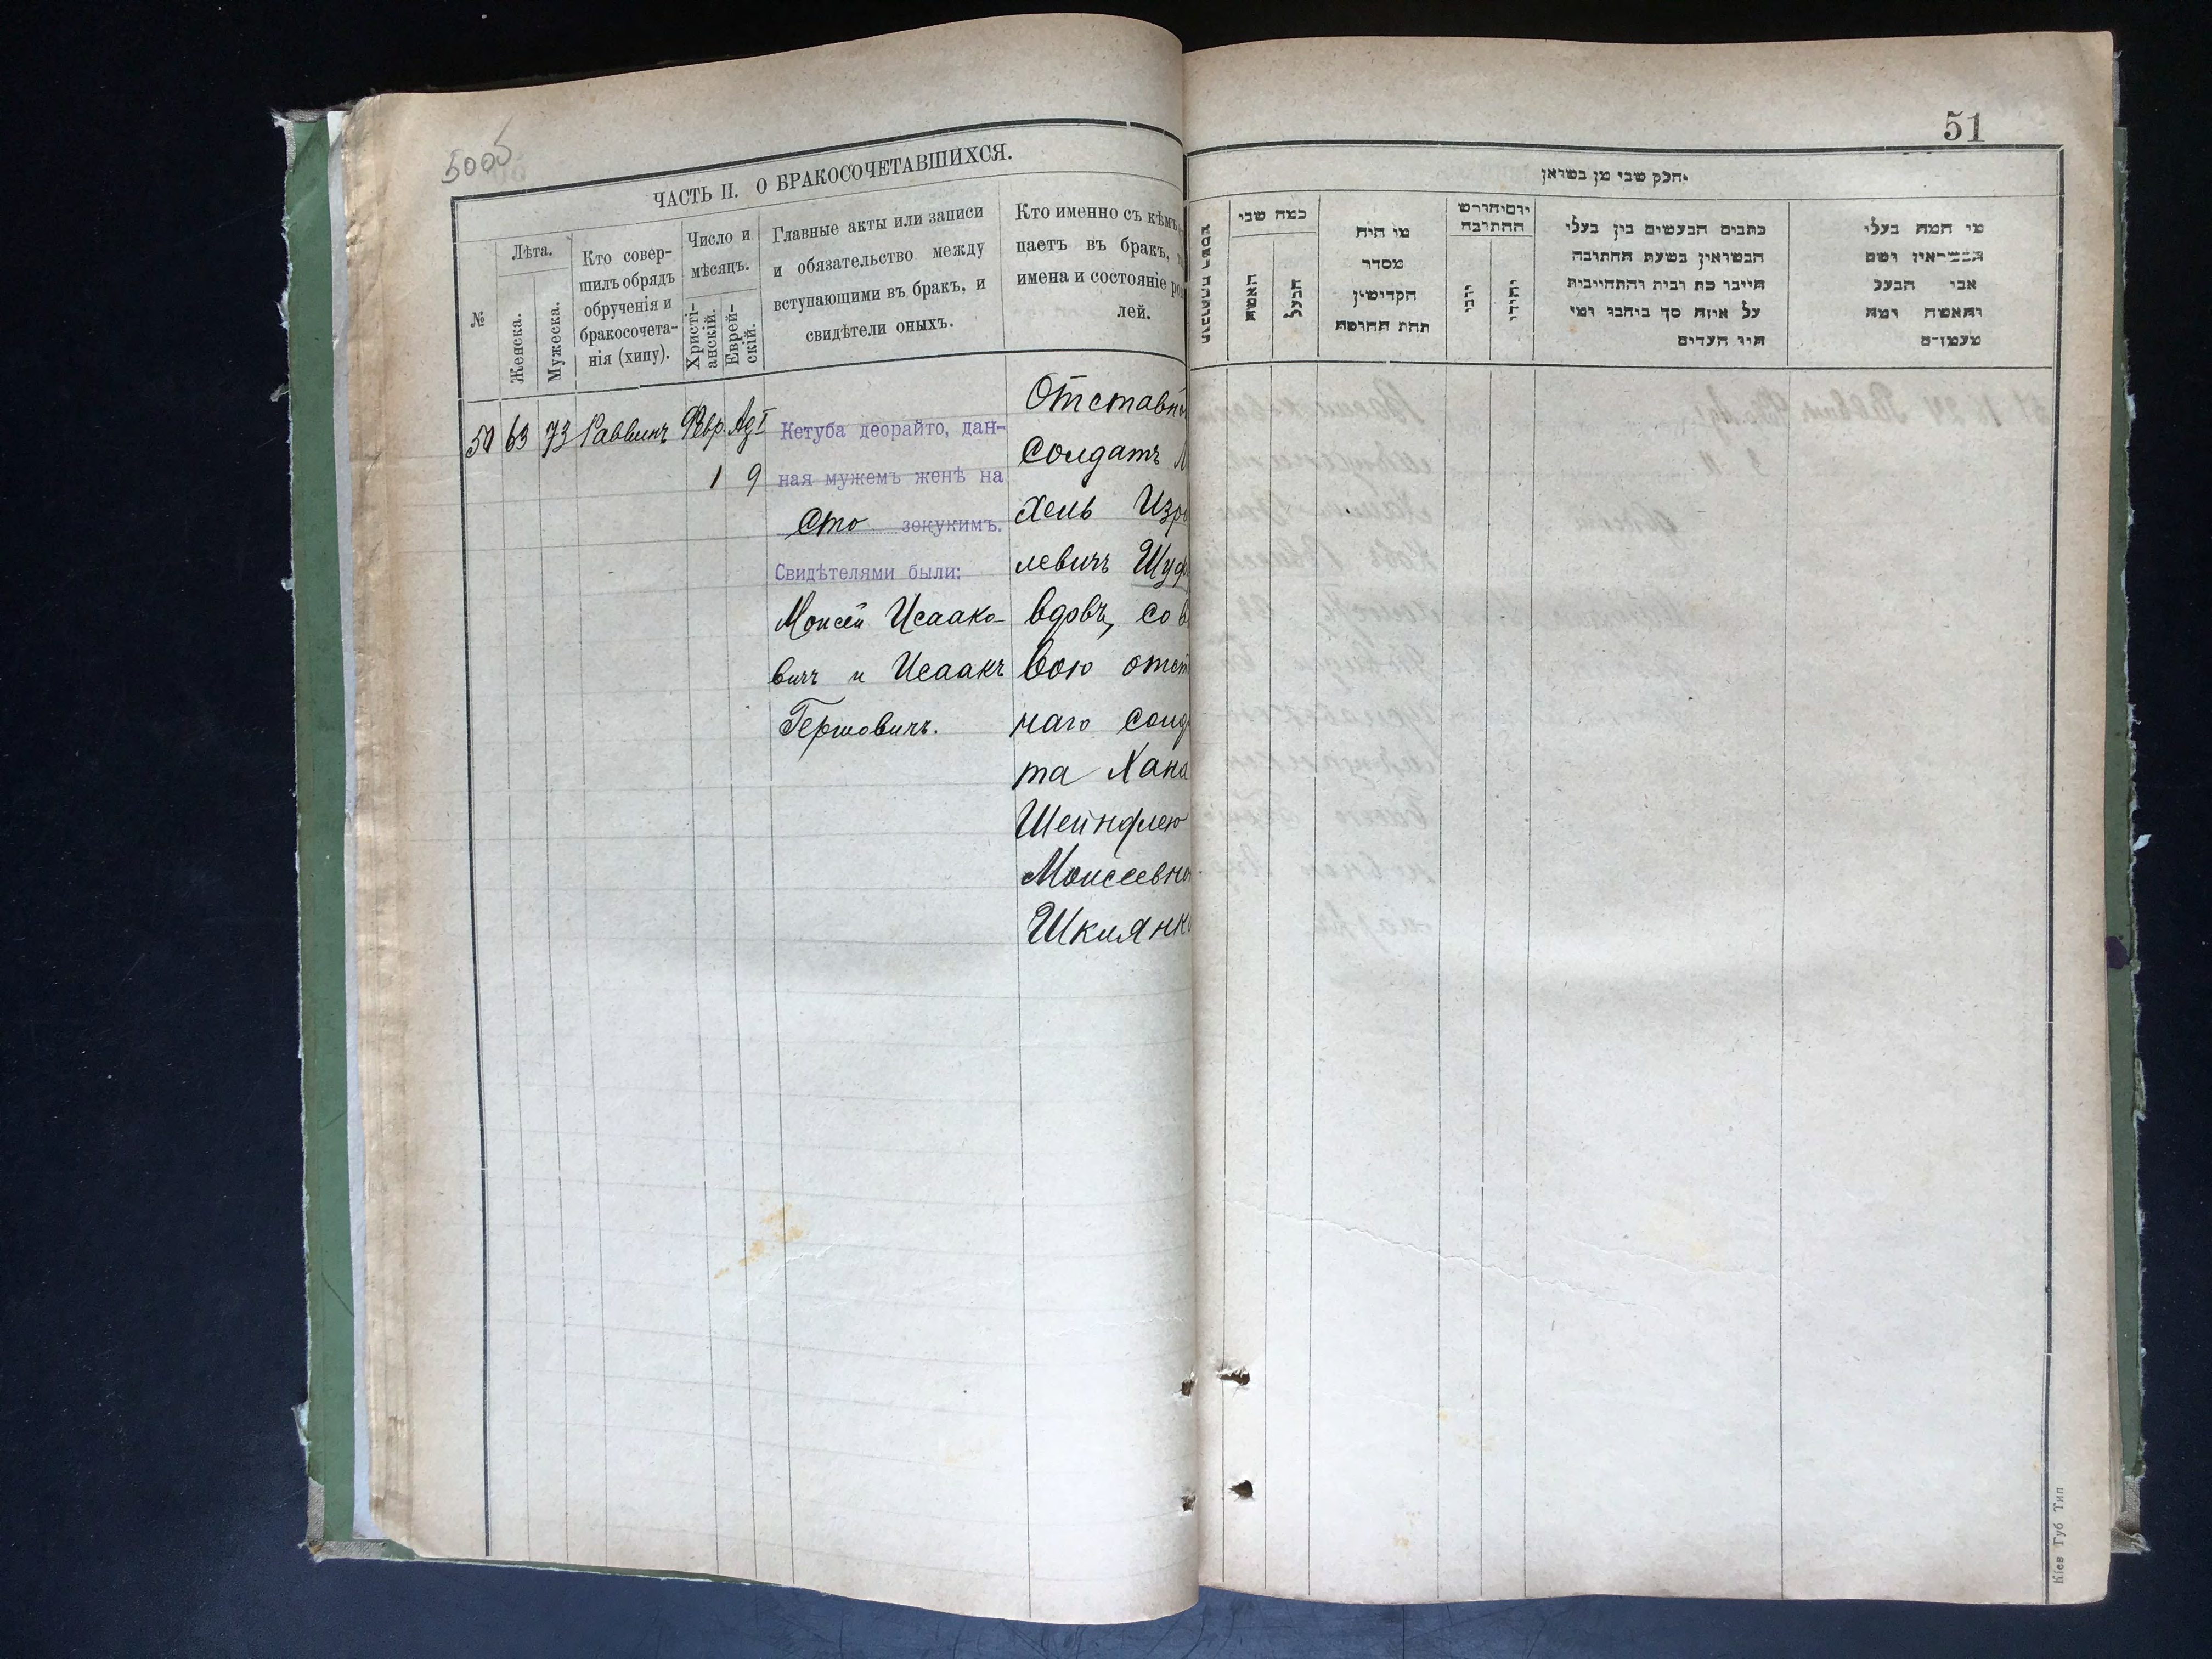 5005
ЧАСТЬ II. О БРАКОСОЧЕТАВШИХСЯ.
№
Лѣта.
Женска.
Мужеска.
Кто совер-
шилъ обрядъ
обрученія и
бракосочета-
нія (хипу).
Число и
мѣсяцъ.
Христі-
анскій.
Еврей-
скій.
Главные акты или записи
и обязательство между
вступающими въ бракъ, и
свидѣтели оныхъ.
Кто именно съ кѣмъ
паетъ въ бракъ,
имена и состояніе
лей.
50 63 73 Раввинъ Февр. Ад I
1 9
Кетуба деорайто, дан-
ная мужемъ женѣ на
Сто зекукимъ.
Свидѣтелями были:
Моисей Исаако-
вичъ и Исаакъ
Гершовичъ.
Отставно
Солдатъ
хель Изра
левичъ Шуф
вдовъ, со в
вою отст
наго солд
та Хана
Шейндлею
Моисеевно
Шклянк
51
חלק שני מן נשואין
כמה שני
האשה
הבעל
מי היה
מסדר
הקדושין
תחת החופה
יום וחודש
החתונה
נוצרי
יהודי
כתבים הנעשים בין בעלי
הנשואין בשעת החתונה
היינו כת ובית והתחייבות
על איזה סך ביחבו ומי
היו העדים
מי המה בעלי
הנשואין ושם
אבי הבעל
והאשה ומה
מעמדם
Кіев Губ Тип